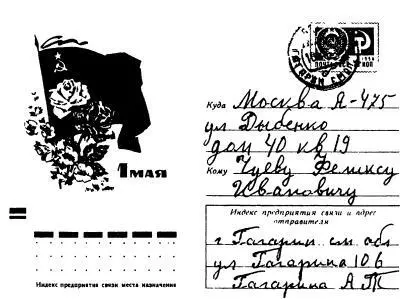 1 МАЯ
Куда Москва А-475
ул Дыбенко
дом 40 кв 19
Кому Чуеву Феликсу
Ивановичу
Индекс предприятия связи и адрес
отправителя
г Гагарин см обл
ул Гагарина 106
Гагарина А Т
Индекс предприятия связи места назначения